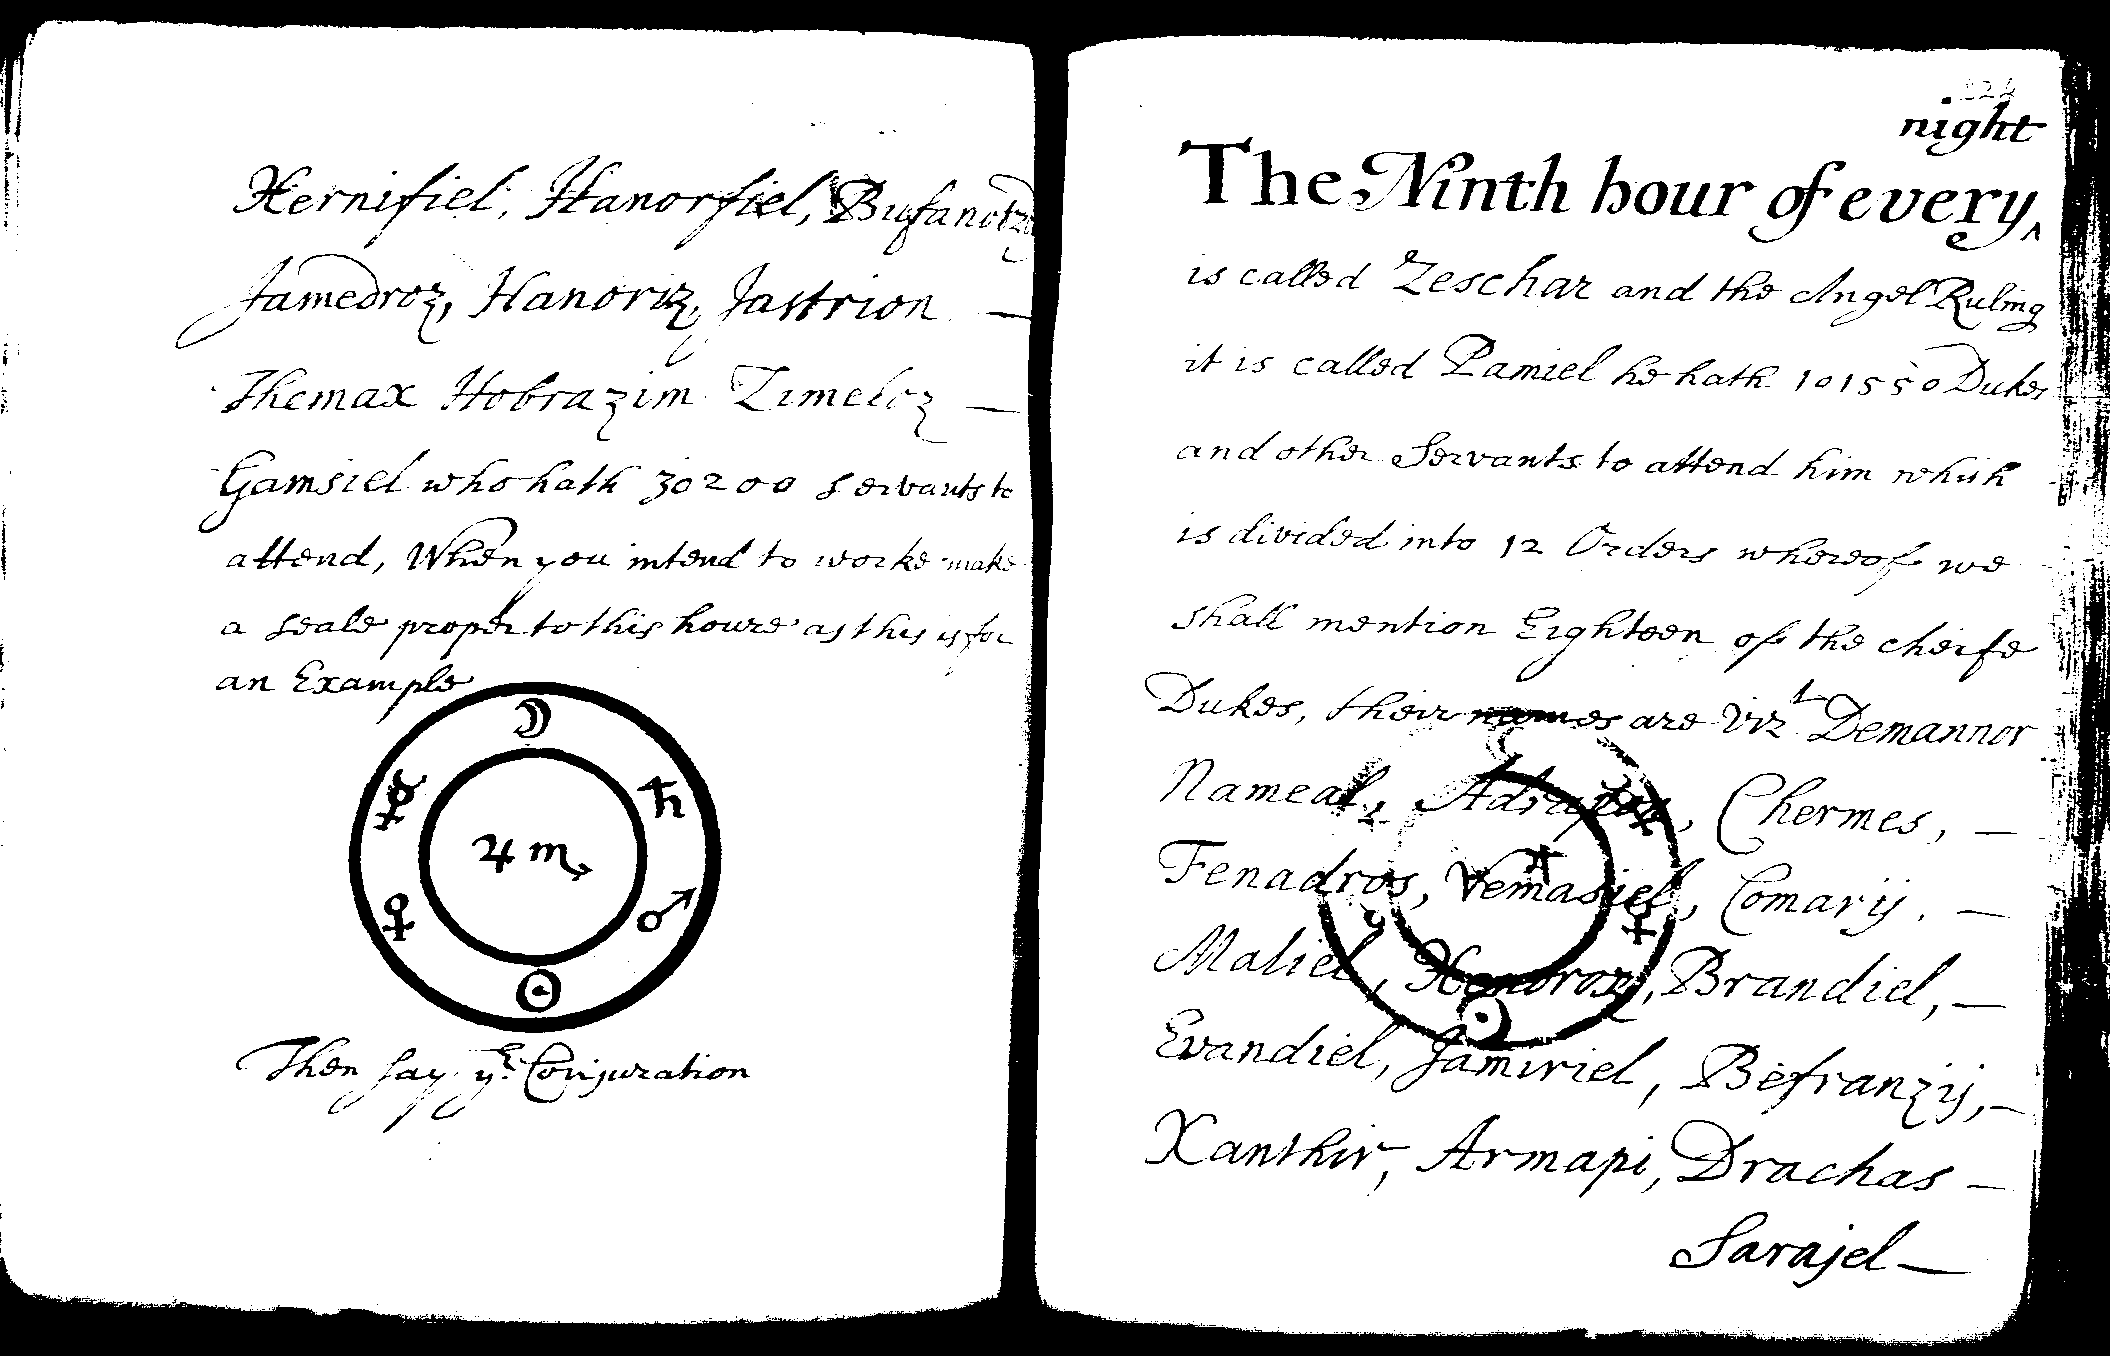 Hernifiel, Hanorfiel, Bufanotzo
Jamedroz, Hanoriz, Jastrion —
Themax Hobrazim Zimeloz —
Gamsiel who hath 30200 servants to
attend, When you intend to worke make
a seale proper to this houre as this is for
an Example
☽
☿ ♄
♃ ♏
♀ ♂
☉
Then say yᵉ Conjuration
night
The Ninth hour of every‸
is called Zeschar and the Angel Ruling
it is called Pamiel he hath 101550 Dukes
and other Servants to attend him which
is divided into 12 Orders whereof we
shall mention Eighteen of the cheife
Dukes, their names are Vizᵗ Demannor
Nameal, Chermes, —
Fenadros, Vemasiel, Comarij, —
Maliel, Brandiel, —
Evandiel, Jamiriel, Befranzij, —
Xanthir, Armapi, Drachas —
Sarajel —